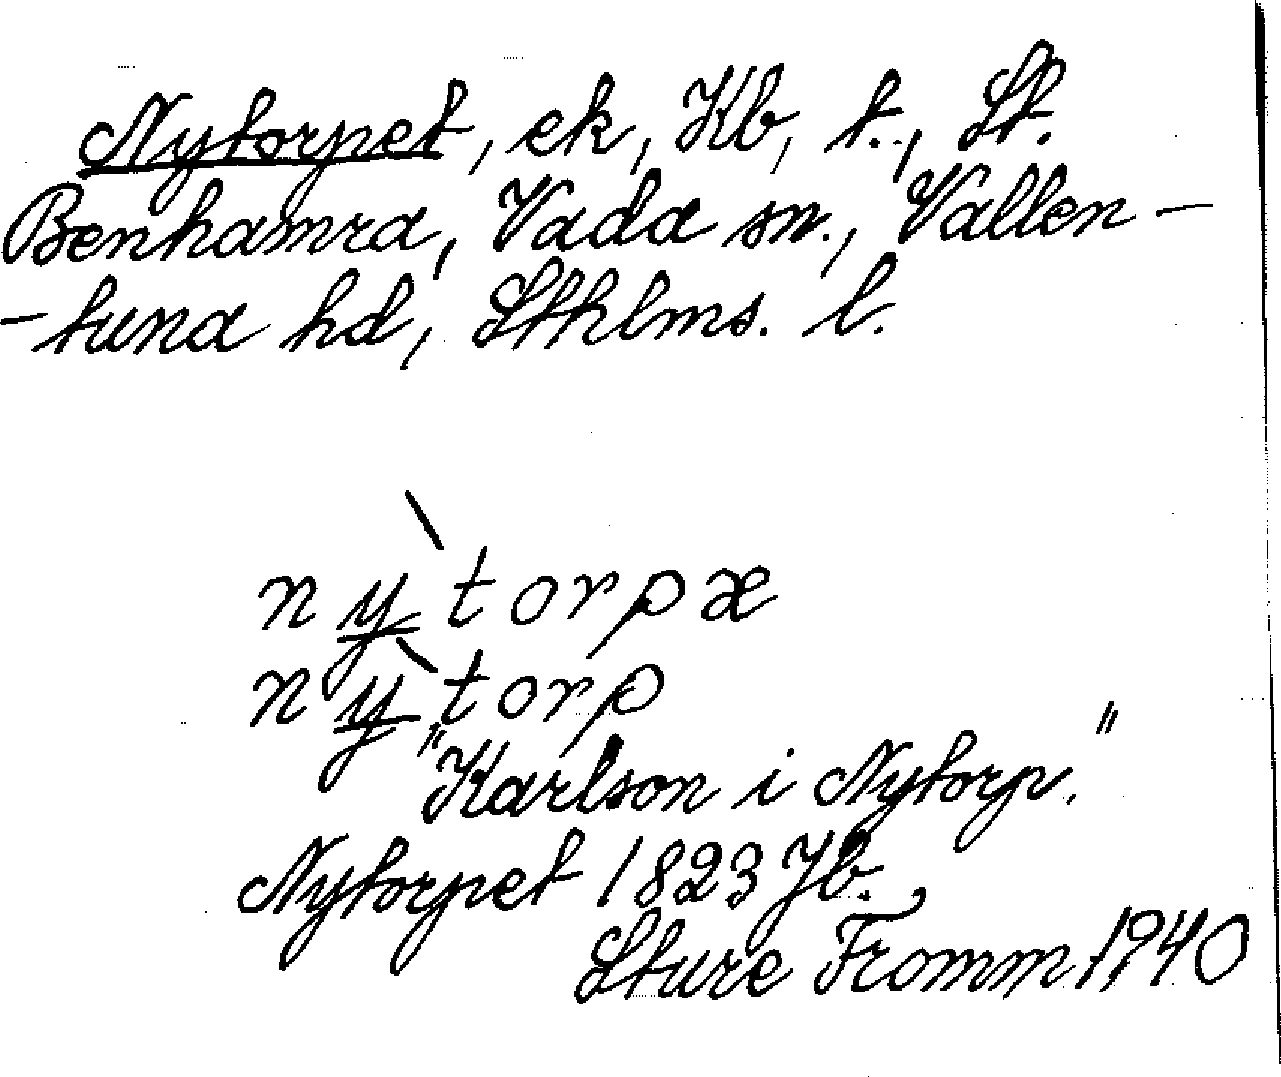 Nytorpet, ek, Kb, t., St.
Benhamra, Vada sn., Vallen-
-tuna hd, Sthlms. l.
nỳtorpæ
nỳtorp
"Karlson i Nytorp."
Nytorpet 1823 Jb.
Sture Fromm. 1940